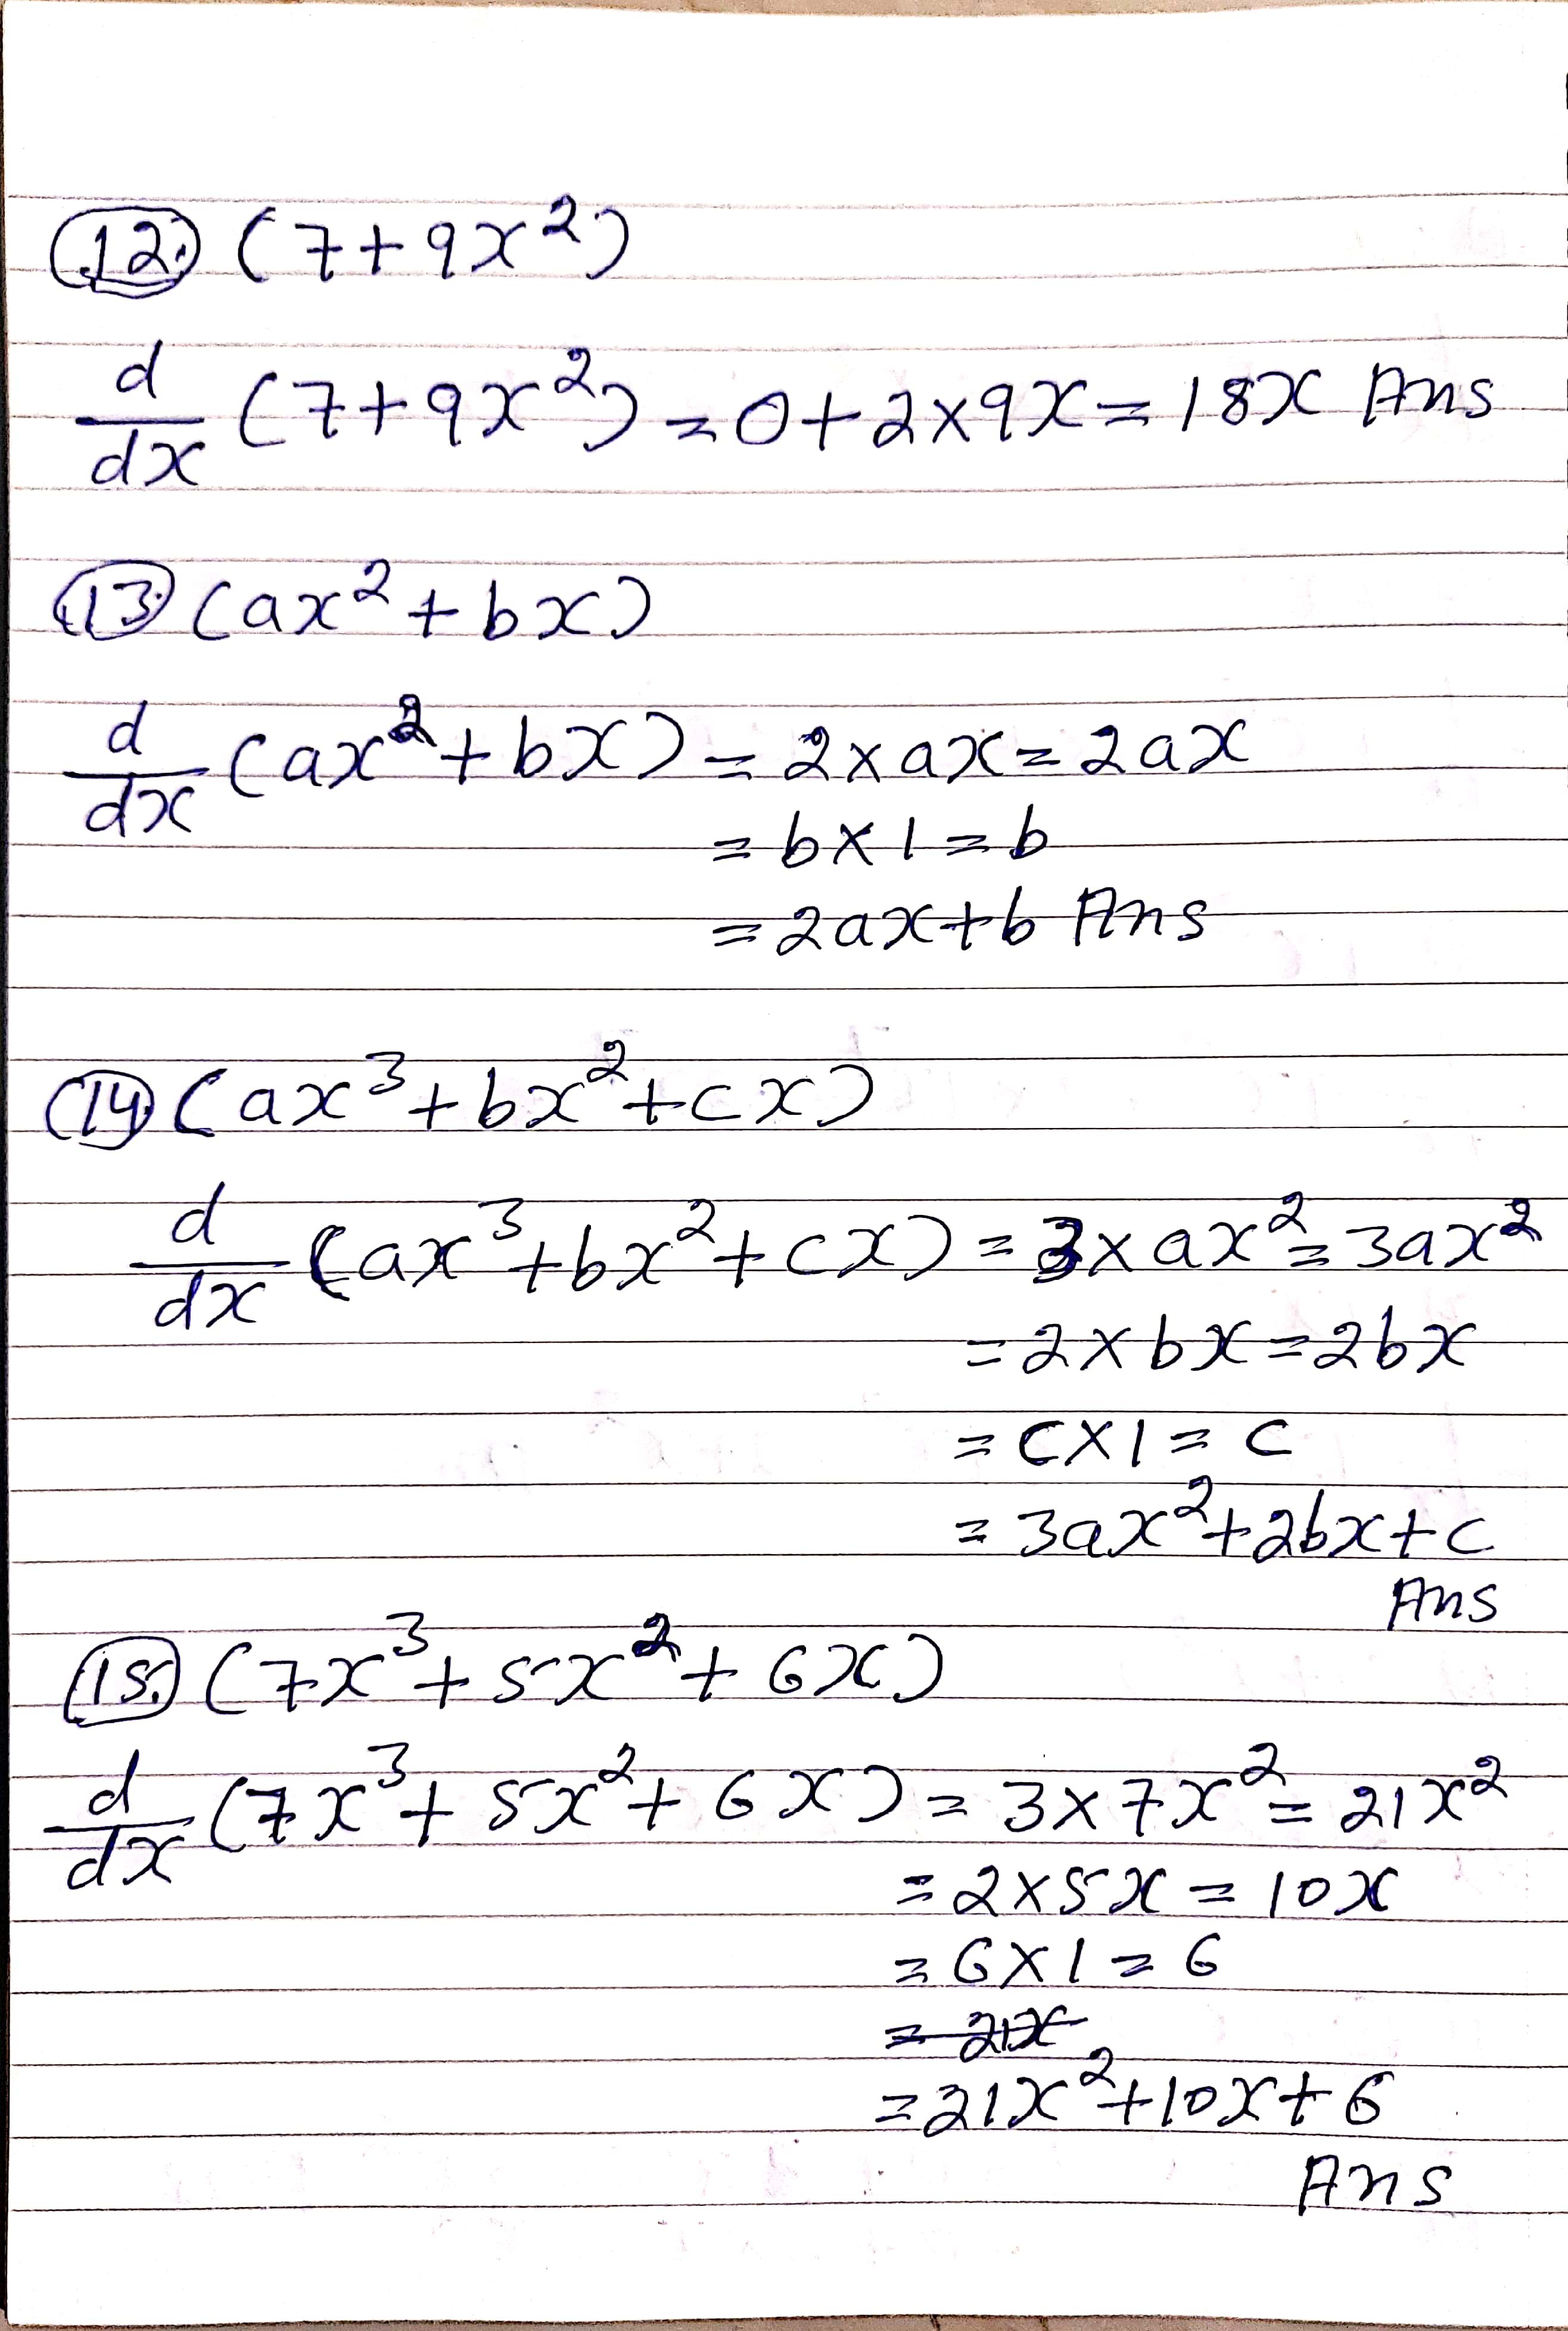 12. (7+9x²)
d/dx (7+9x²) = 0+2×9x = 18x Ans
13. (ax²+bx)
d/dx (ax²+bx) = 2×ax = 2ax
= b×1 = b
= 2ax+b Ans
14. (ax³+bx²+cx)
d/dx (ax³+bx²+cx) = 3×ax² = 3ax²
= 2×bx = 2bx
= c×1 = c
= 3ax²+2bx+c
Ans
15. (7x³+5x²+6x)
d/dx (7x³+5x²+6x) = 3×7x² = 21x²
= 2×5x = 10x
= 6×1 = 6
= 21x
= 21x²+10x+6
Ans